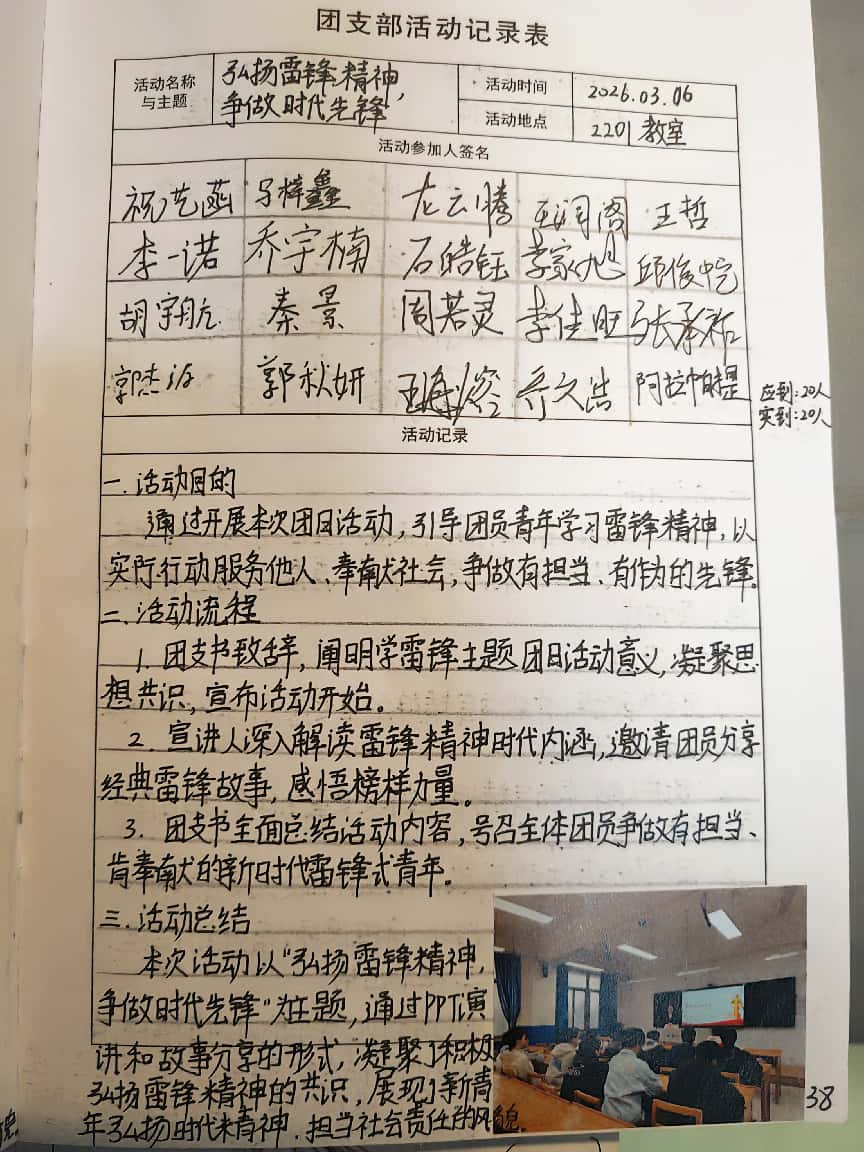 团支部活动记录表
活动名称与主题
弘扬雷锋精神,
争做时代先锋
活动时间 2026.03.06
活动地点 2201教室
活动参加人签名
祝艺菡 马梓鑫 龙云腾 王哲
李一诺 乔宇楠 石皓钰 李家旭 邱俊恺
胡宇航 秦景 周若灵 李佳旺 张承祐
郭秋妍 乔文浩 阿拉帕提
应到:20人
实到:20人
活动记录
一.活动目的
通过开展本次团日活动,引导团员青年学习雷锋精神,以
实际行动服务他人、奉献社会,争做有担当、有作为的先锋.
二.活动流程
1. 团支书致辞,阐明学雷锋主题团日活动意义,凝聚思
想共识,宣布活动开始。
2. 宣讲人深入解读雷锋精神时代内涵,邀请团员分享
经典雷锋故事,感悟榜样力量。
3. 团支书全面总结活动内容,号召全体团员争做有担当、
肯奉献的新时代雷锋式青年。
三.活动总结
本次活动以“弘扬雷锋精神,
争做时代先锋”为主题,通过PPT演
讲和故事分享的形式,凝聚了积极
弘扬雷锋精神的共识,展现了新青
年弘扬时代精神.担当社会责任的风貌.
38